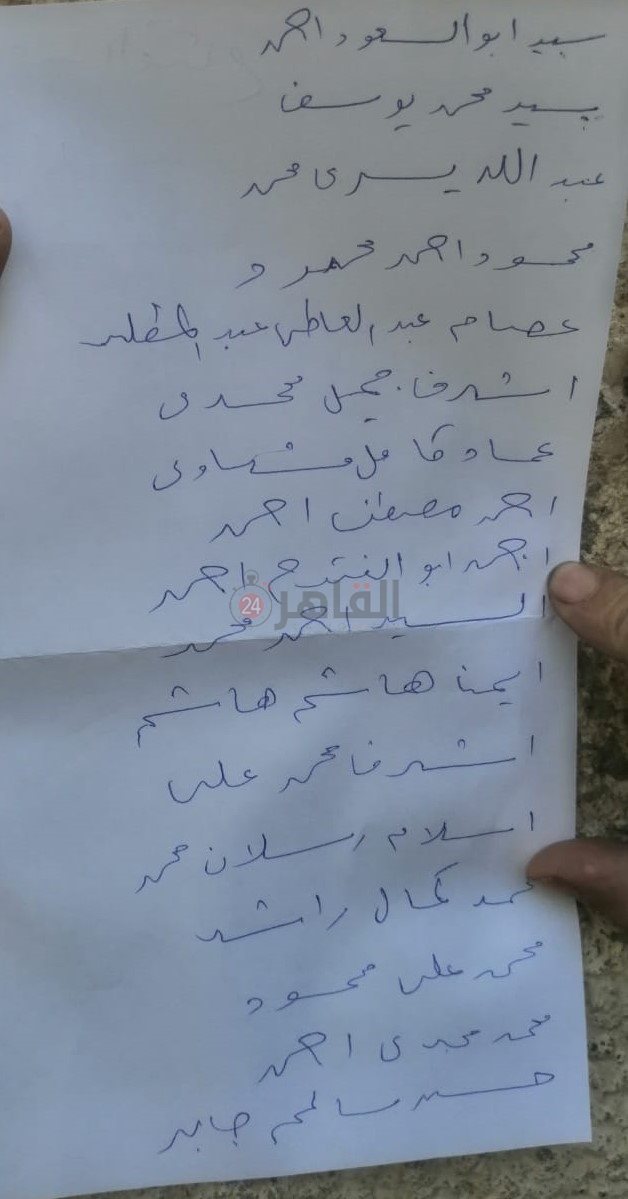 سيد ابو السعود احمد
سيد محمد يوسف
عبد الله يسرى محمد
محمود احمد محمود
عصام عبد العاطى عبد
اشرف جميل مجدى
عماد كامل
احمد مصطفى احمد
احمد ابو الفتوح احمد
السيد احمد محمد
القاهرة 24
ايمن هاشم هاشم
اشرف محمد على
اسلام رسلان محمد
محمد كمال راشد
محمد على محمود
محمد مجدى احمد
حسن سالم جابر